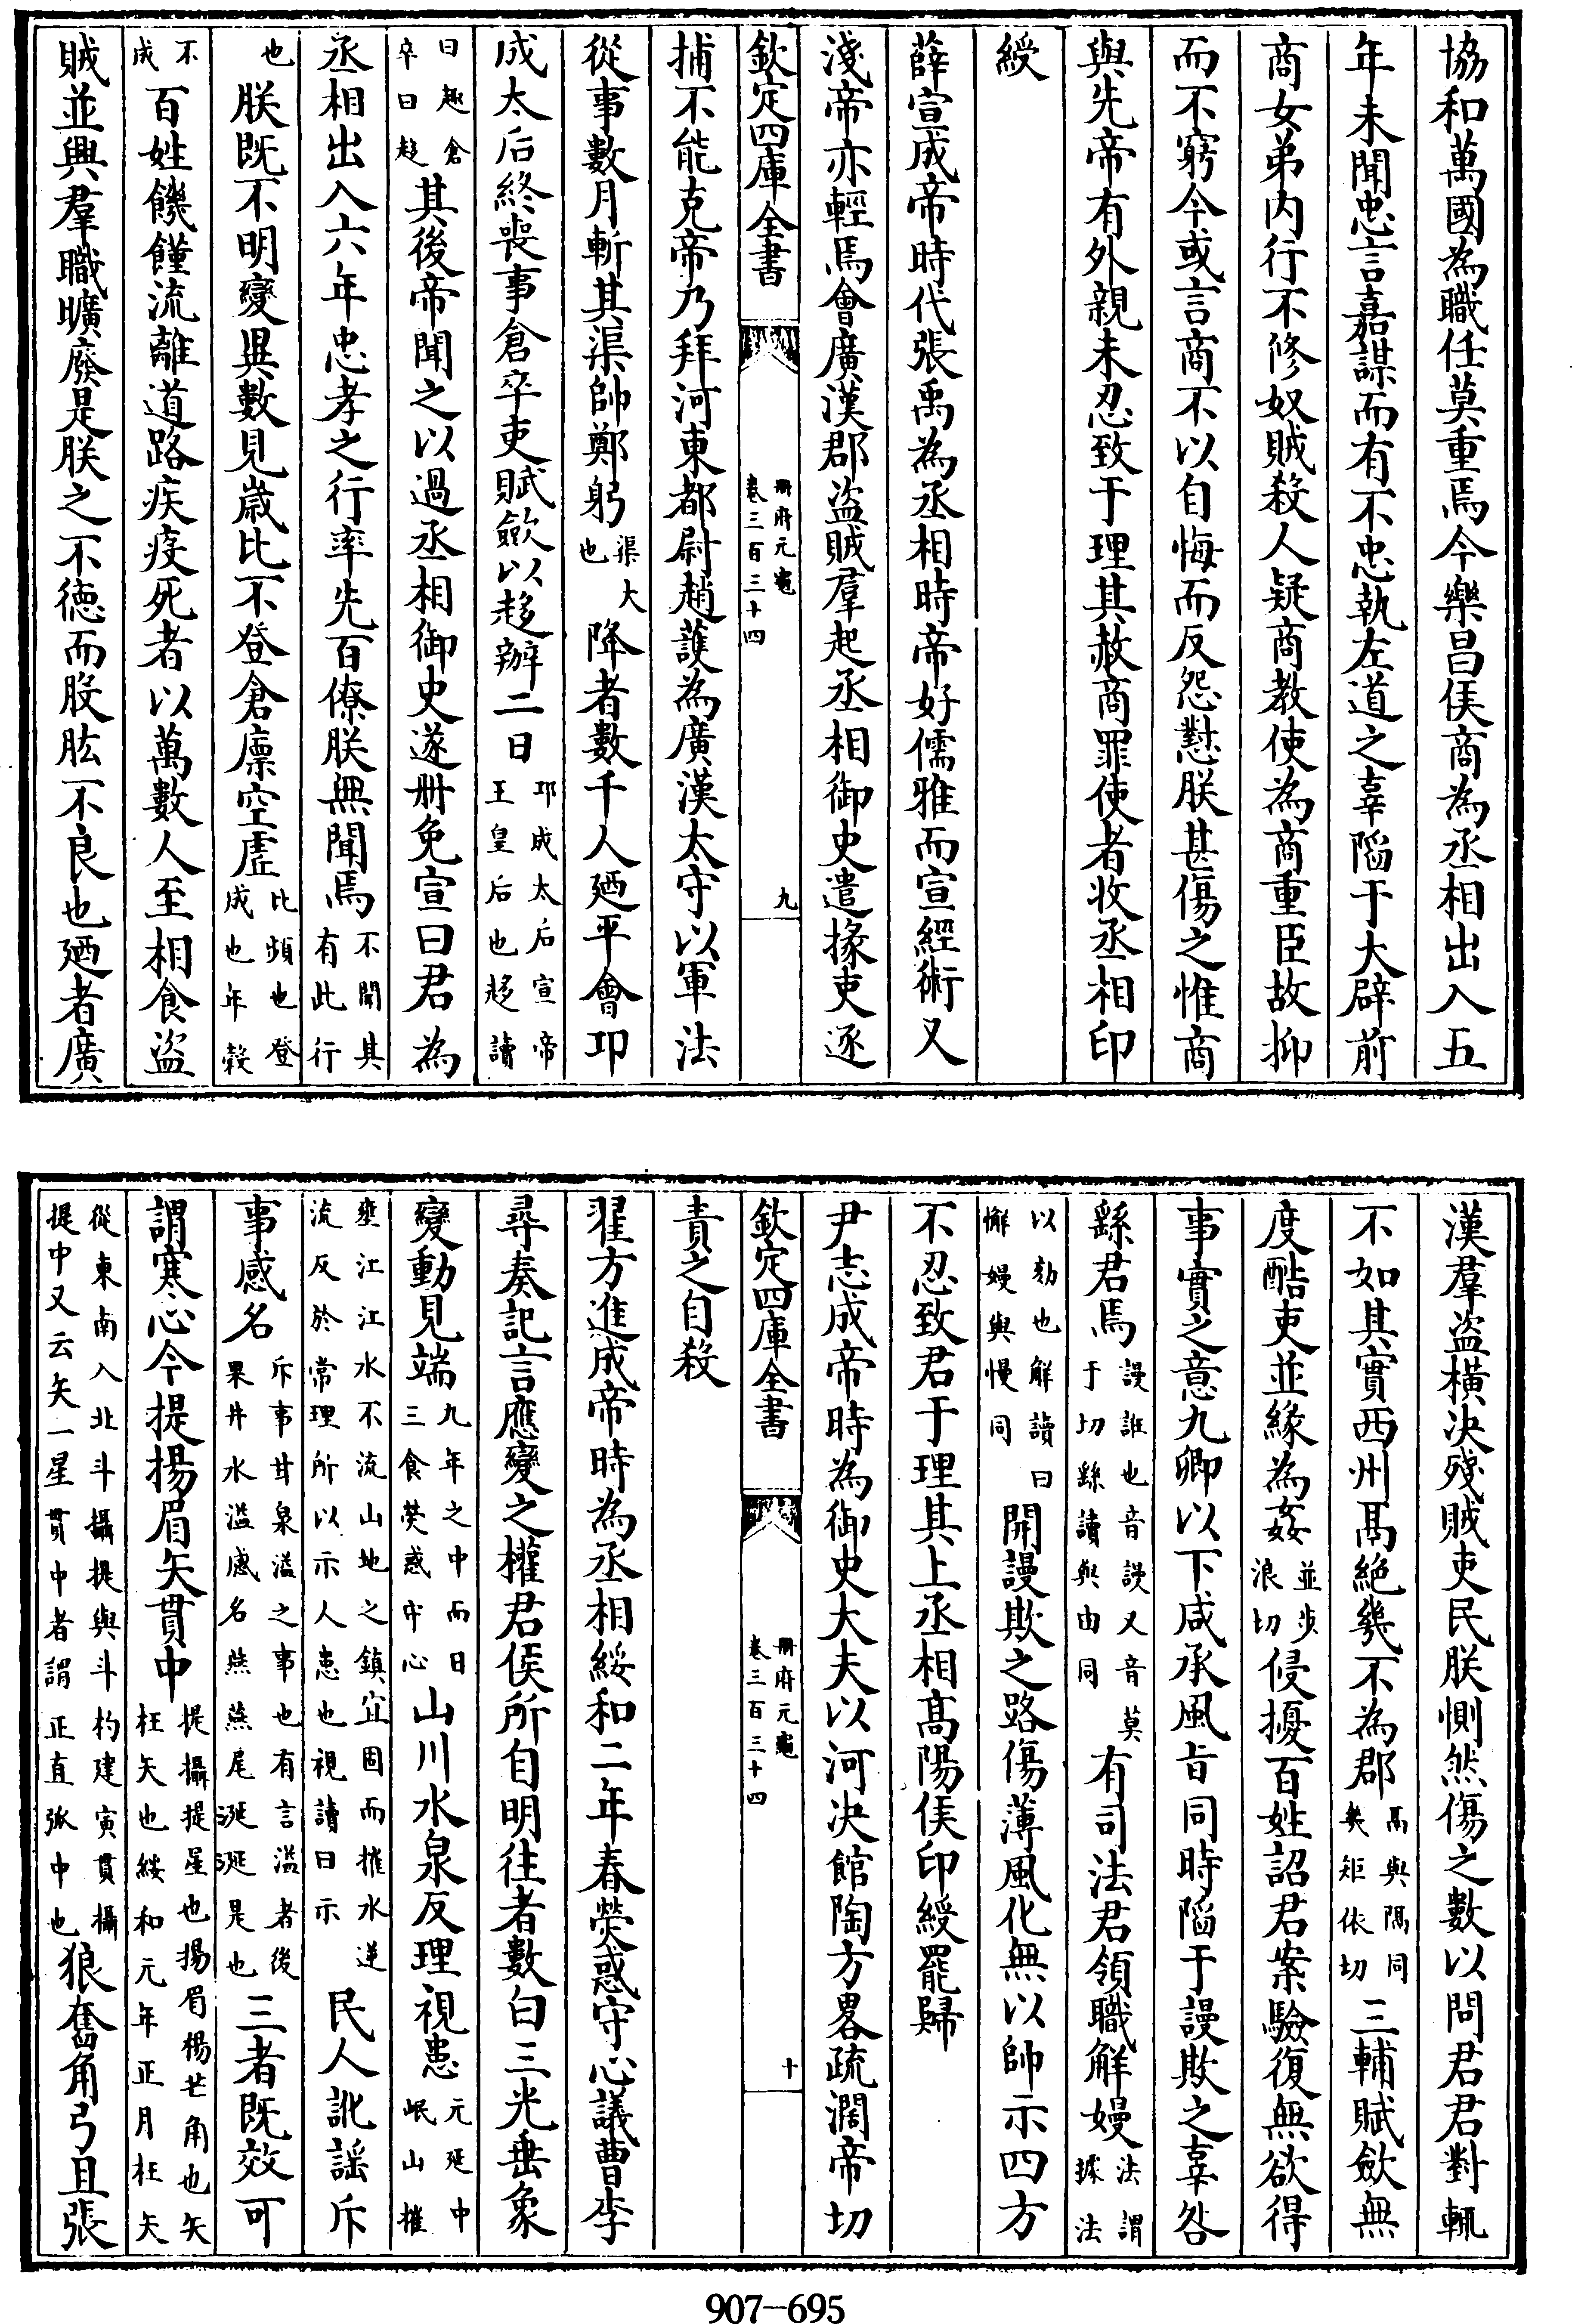 協和萬國為職任莫重焉今樂昌侯商為丞相出入五
年未聞忠言嘉謀而有不忠執左道之辜陷于大辟前
商女弟内行不修奴賊殺人疑商教使為商重臣故抑
而不窮今或言商不以自悔而反怨懟朕甚傷之惟商
與先帝有外親未忍致于理其赦商罪使者收丞相印
綬
薛宣成帝時代張禹為丞相時帝好儒雅而宣經術又
淺帝亦輕焉會廣漢郡盜賊羣起丞相御史遣掾吏逐
欽定四庫全書 冊府元龜 卷三百三十四 九
捕不能克帝乃拜河東都尉趙護為廣漢太守以軍法
從事數月斬其渠帥鄭躬渠大也降者數千人廼平會邛
成太后終喪事倉卒吏賦歛以趍辦二日邛成太后宣帝王皇后也趍讀
曰趣倉卒曰趍其後帝聞之以過丞相御史遂册免宣曰君為
丞相出入六年忠孝之行率先百僚朕無聞焉不聞其有此行
也朕既不明變異數見嵗比不登倉廪空虛比頻也登成也年穀
不成百姓饑饉流離道路疾疫死者以萬數人至相食盜
賊並興羣職曠廢是朕之不徳而股肱不良也廼者廣
漢羣盜橫决殘賊吏民朕惻然傷之數以問君君對輒
不如其實西州鬲絶幾不為郡鬲與隔同幾矩依切三輔賦歛無
度酷吏並緣為姦並步浪切侵擾百姓詔君案驗復無欲得
事實之意九卿以下咸承風㫖同時陷于謾欺之辜咎
繇君焉謾誑也音謾又音莫于切繇讀與由同有司法君領職解嫚法謂據法
以劾也解讀曰懈嫚與慢同開謾欺之路傷薄風化無以帥示四方
不忍致君于理其上丞相髙陽侯印綬罷歸
尹志成帝時為御史大夫以河决館陶方畧疏濶帝切
欽定四庫全書 冊府元龜 卷三百三十四 十
責之自殺
翟方進成帝時為丞相綏和二年春熒惑守心議曹李
尋奏記言應變之權君侯所自明往者數白三光垂象
變動見端九年之中而日三食熒惑守心山川水泉反理視患元延中岷山摧
壅江江水不流山地之鎮宜固而摧水逆流反於常理所以示人患也視讀曰示民人訛謡斥
事感名斥事井泉溢之事也有言溢者後果井水溢感名燕燕尾涎涎是也三者既效可
謂寒心今提揚眉矢貫中提攝提星也揚眉揚芒角也矢枉矢也綏和元年正月枉矢
從東南入北斗攝提與斗杓建寅貫攝提中又云矢一星貫中者謂正直弧中也狼奮角弓且張
907-695